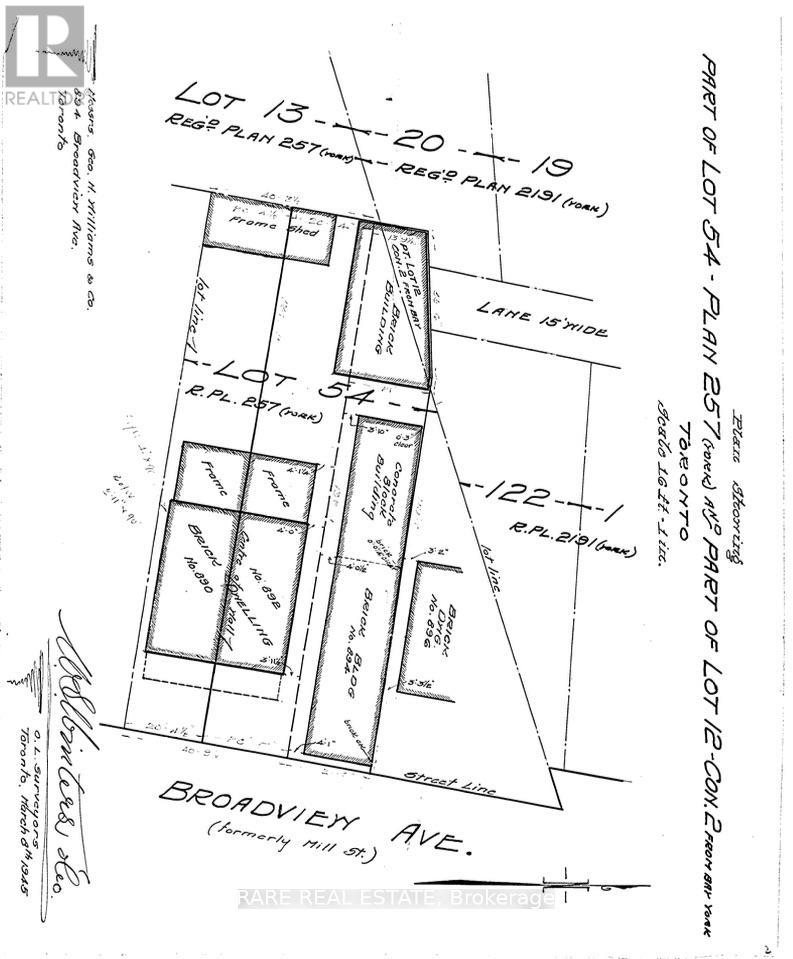 REALTOR
Plan Showing
PART OF LOT 54 - PLAN 257 (YORK) AND PART OF LOT 12 - CON. 2 FROM BAY YORK
TORONTO
Scale 16 ft. - 1 in.
Messrs. Geo. H. Williams & Co.
Broadview Ave.
Toronto
LOT 13 - 20 - 19
REG'D PLAN 257 (YORK) - REG'D PLAN 2191 (YORK)
Frame Shed
PT. LOT 12
CON. 2 FROM BAY
BRICK
BUILDING
LANE 15' WIDE
lot line
LOT 54
R. PL. 257 (YORK)
3'-10"
0'-3"
clear
Concrete
Block
Building
122 - 1
R. PL. 2191 (YORK)
lot line
Frame
Frame
4'-1½
4'-0"
4'-0½
3'-2"
BRICK
No. 890
No. 892
DWELLING
BRICK BLDG
No. 894
BRICK
DWG
No. 896
3'-11½
3'-3½
20'-4½
Street Line
BROADVIEW AVE.
(formerly Mill St.)
O. L. Surveyors
Toronto, March 8th 1945
RARE REAL ESTATE, Brokerage
2